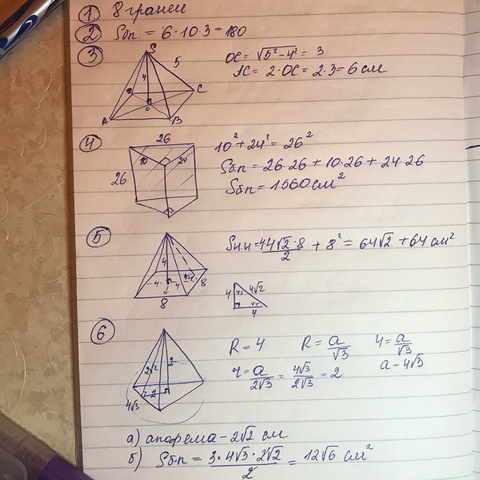 1 8 граней
2 Sбп = 6·10·3 = 180
3
S
4
5
A
B
C
D
O
OC = √5²-4² = 3
AC = 2·OC = 2·3 = 6 см
4
26
10
24
26
10² + 24² = 26²
Sбп = 26·26 + 10·26 + 24·26
Sбп = 1560 см²
5
4
4
4
4√2
8
8
Sп.п = 44√2·8/2 + 8² = 64√2 + 64 см²
4
4√2
4
6
2√2
2
2
4√3
R = 4
R = a/√3
4 = a/√3
r = a/2√3 = 4√3/2√3 = 2
a - 4√3
а) апофема - 2√2 см
б) Sб.п = 3·4√3·2√2/2 = 12√6 см²